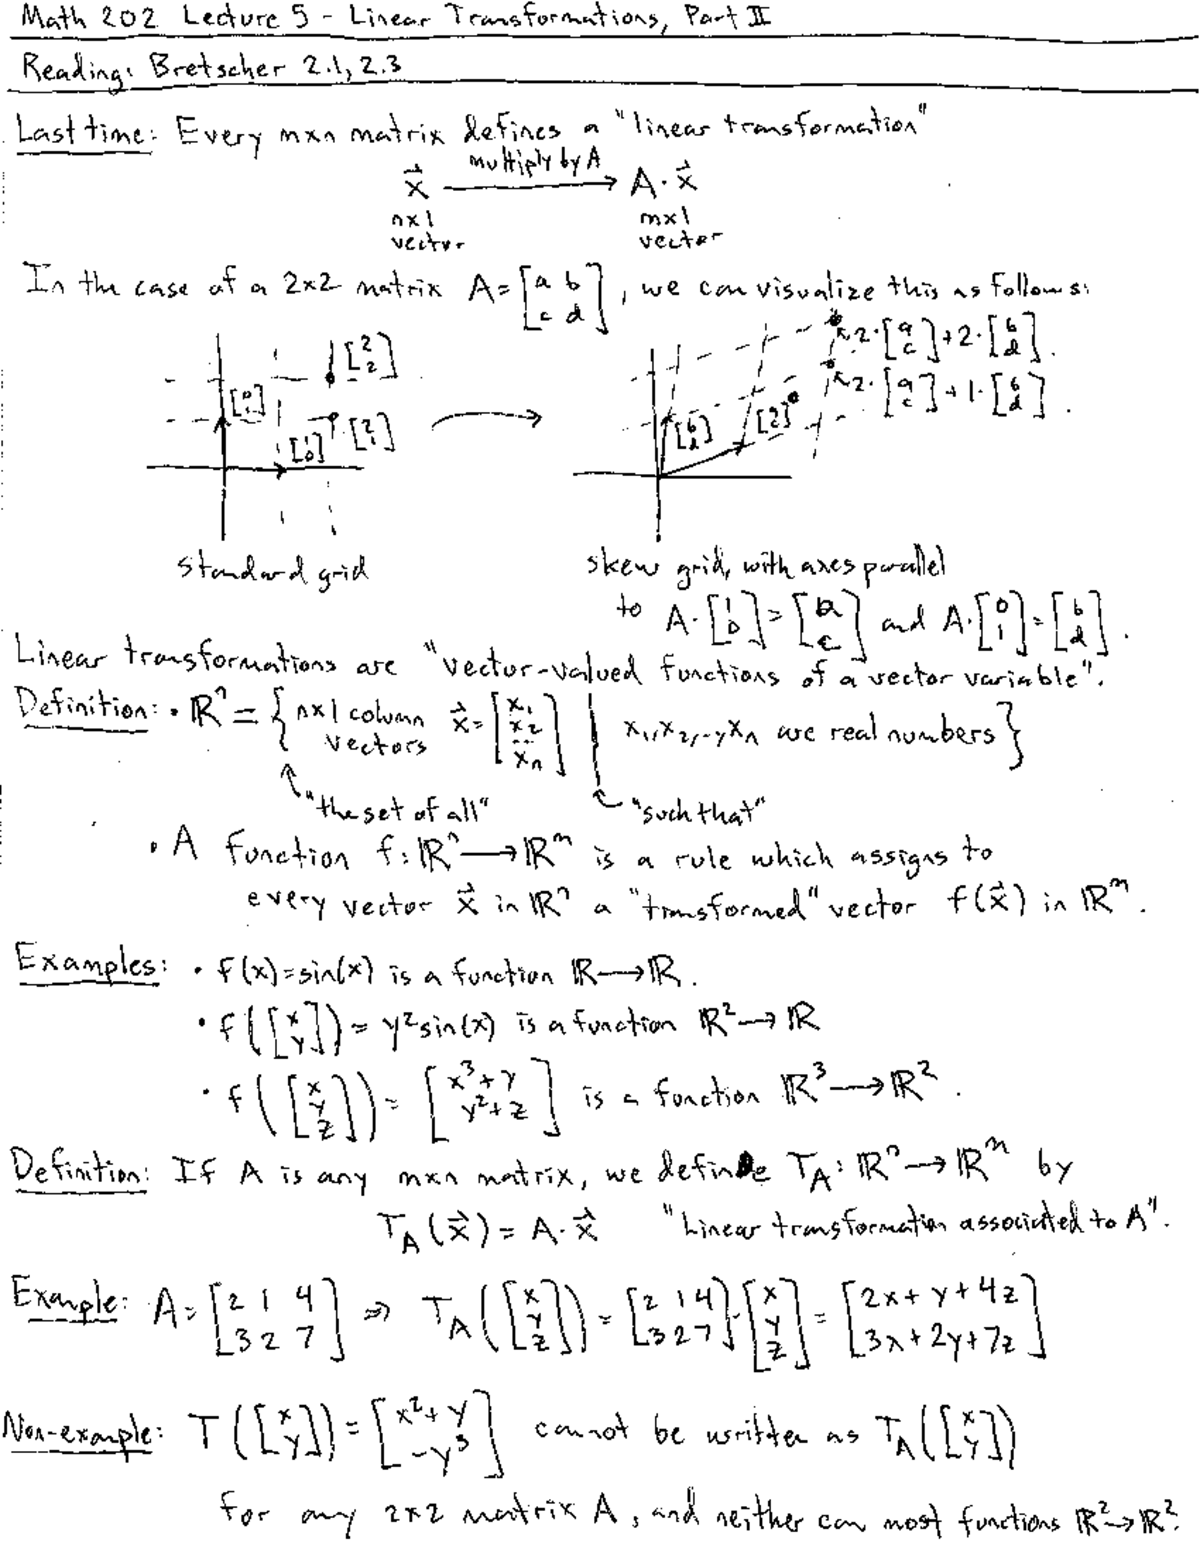 Math 202 Lecture 5 - Linear Transformations, Part II
Reading: Bretscher 2.1, 2.3
Last time: Every mxn matrix defines a "linear transformation"
multiply by A
x⃗ ⟶ A·x⃗
nx1 mx1
vector vector
In the case of a 2x2 matrix A=[a b; c d], we can visualize this as follows:
[2; 2] 2·[a; c]+2·[b; d].
[0; 1] 2·[a; c]+1·[b; d].
[1; 0] [2; 1] [b; d]
standard grid
skew grid, with axes parallel
to A·[1; 0]=[a; c] and A·[0; 1]=[b; d].
Linear transformations are "vector-valued functions of a vector variable".
Definition: • ℝⁿ = { nx1 column vectors x⃗=[x₁; x₂; ...; xₙ] | x₁,x₂,...,xₙ are real numbers}
"the set of all" "such that"
• A function f:ℝⁿ⟶ℝᵐ is a rule which assigns to
every vector x⃗ in ℝⁿ a "transformed" vector f(x⃗) in ℝᵐ.
Examples: • f(x)=sin(x) is a function ℝ⟶ℝ.
• f([x; y])= y²sin(x) is a function ℝ²⟶ℝ
• f([x; y; z])= [x³+y; y²+z] is a function ℝ³⟶ℝ².
Definition: If A is any mxn matrix, we define T_A: ℝⁿ→ℝᵐ by
T_A(x⃗)= A·x⃗ "Linear transformation associated to A".
Example: A=[2 1 4; 3 2 7] ⇒ T_A([x; y; z])=[2 1 4; 3 2 7]·[x; y; z]=[2x+y+4z; 3x+2y+7z]
Non-example: T([x; y])=[x²+y; -y³] cannot be written as T_A([x; y])
for any 2x2 matrix A, and neither can most functions ℝ²→ℝ².